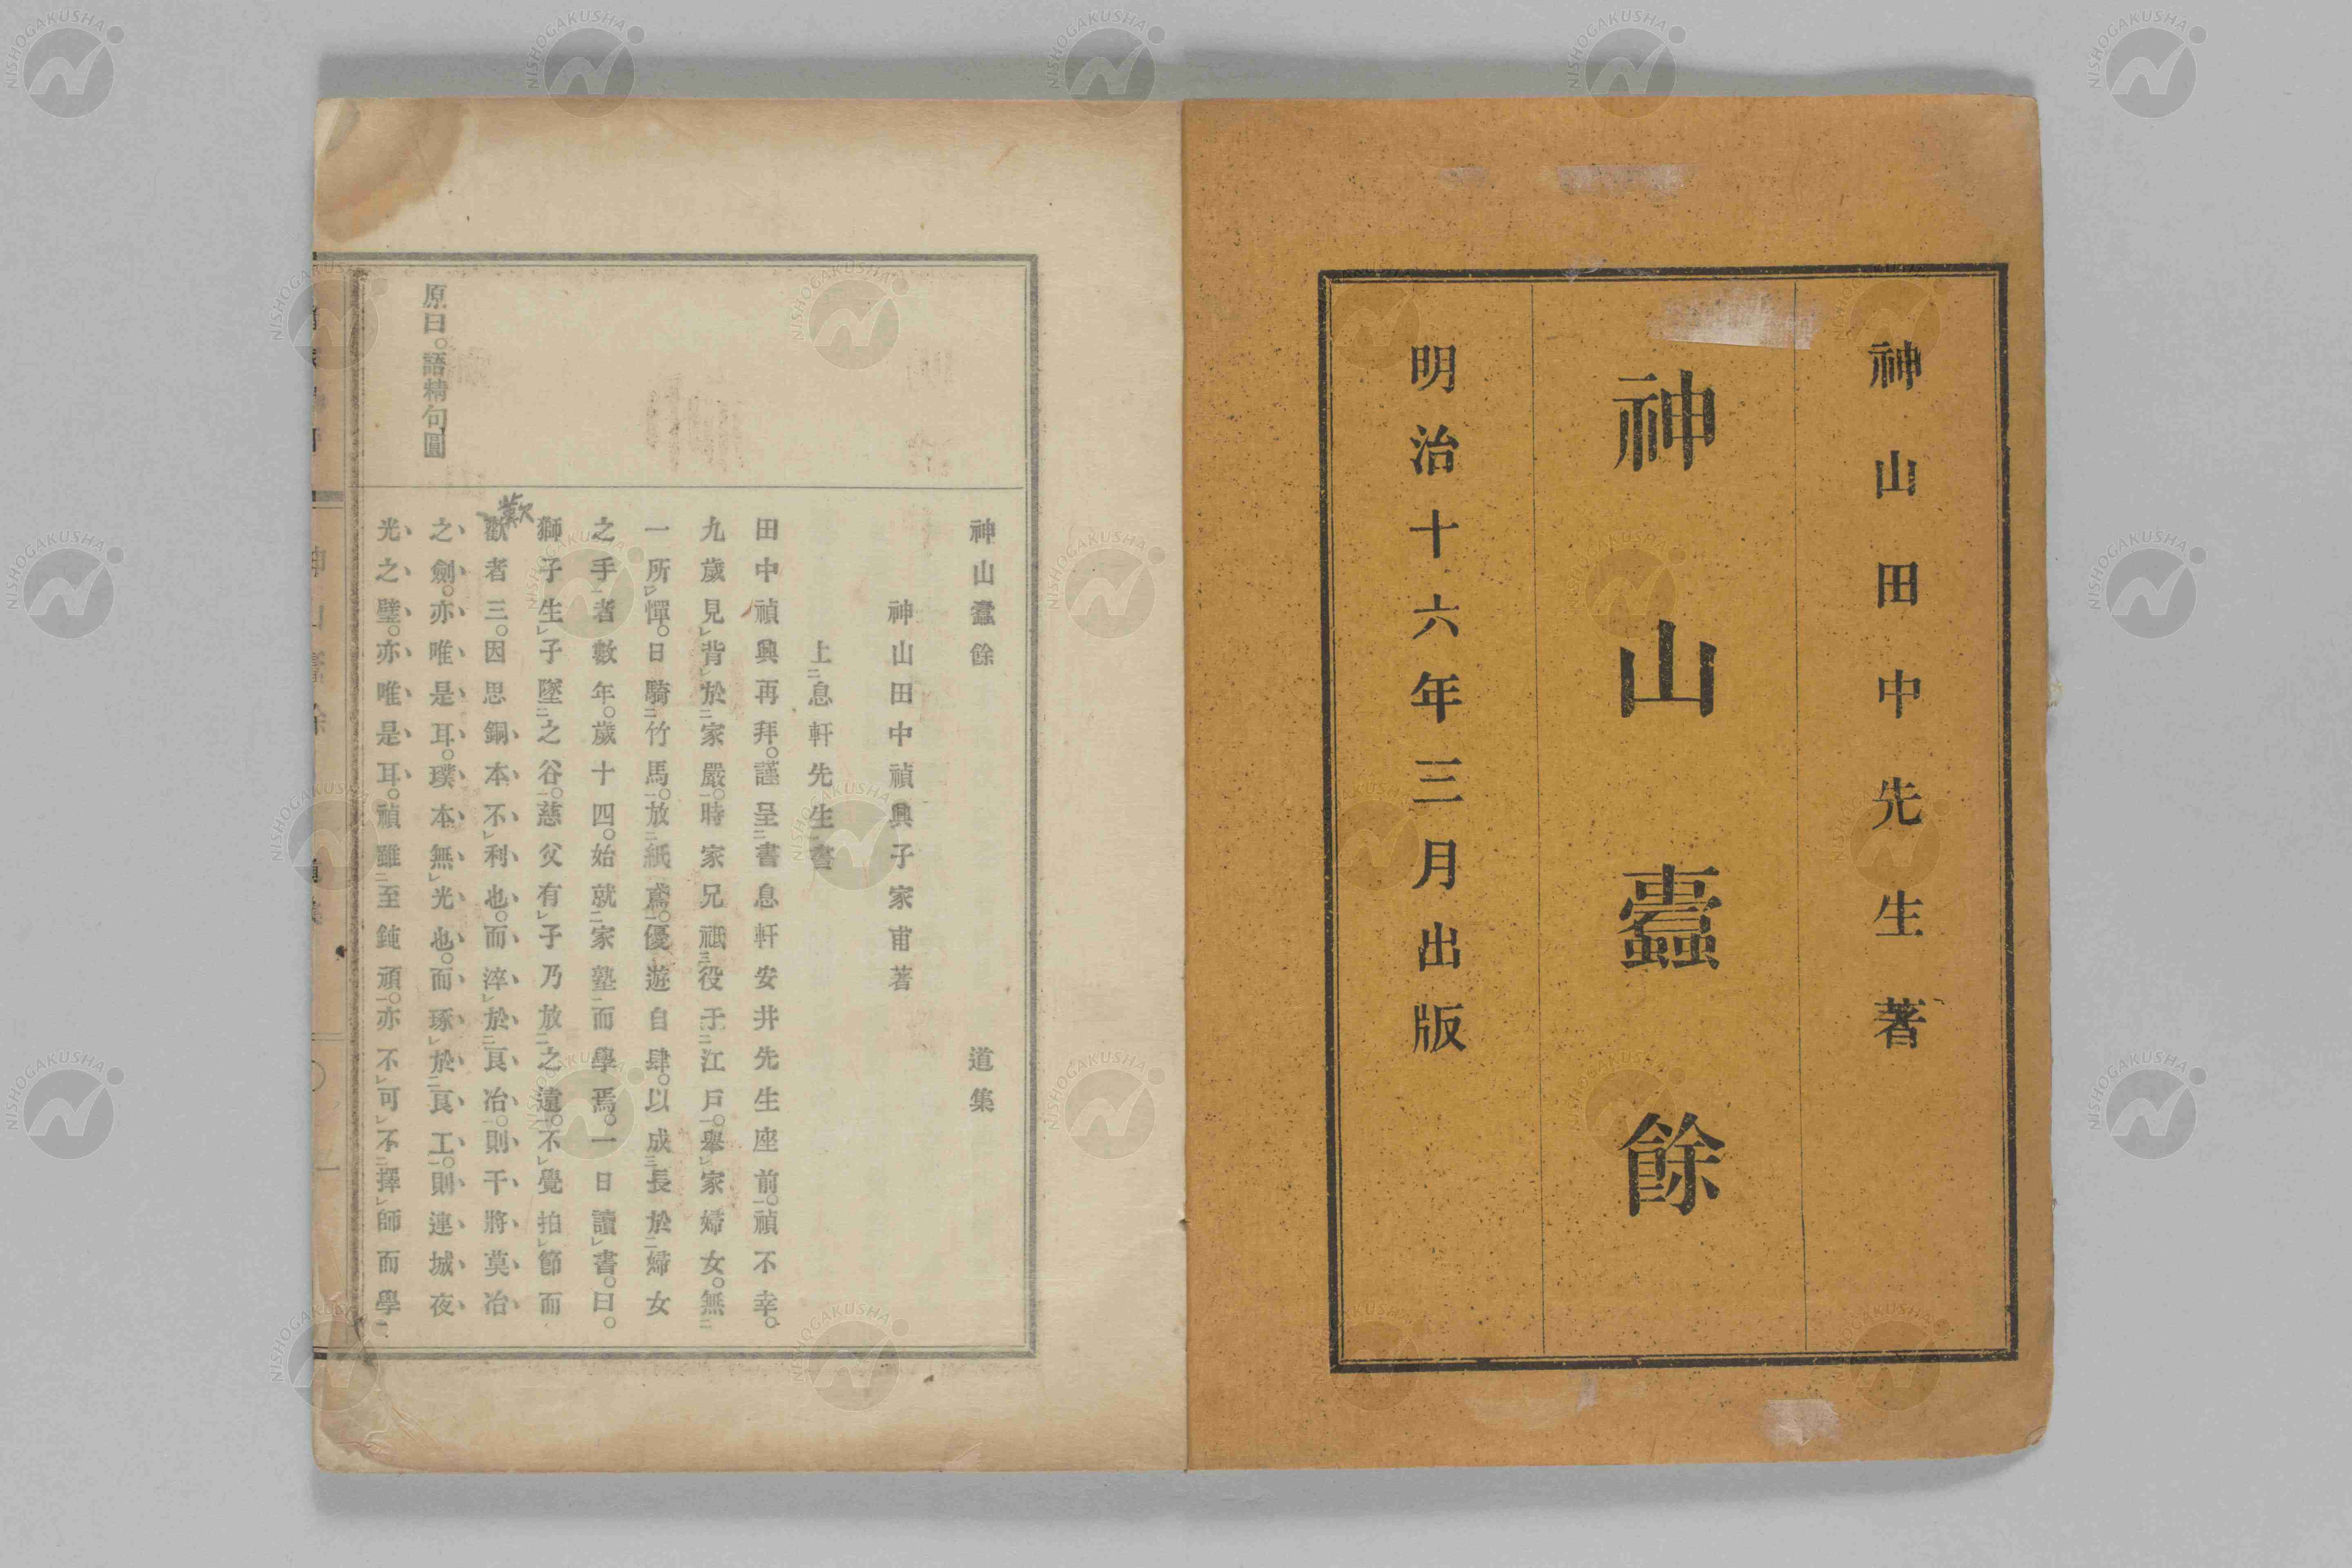 神山田中先生著
神山蠹餘
明治十六年三月出版
神山蠹餘　道集
神山田中禎興子家甫著
上二息軒先生一書
田中禎興再拜。謹呈二書息軒安井先生座前一。禎不幸。
九歲見レ背レ於二家嚴一。時家兄祗三役于二江戶一。舉レ家婦女。無二
一所レ憚。日騎二竹馬一。放二紙鳶一。優遊自肆。以成三長於二婦女
之手一者數年。歲十四。始就二家塾一而學焉。一日讀レ書。曰。
獅子生レ子墜二之谷一。慈父有レ子乃放二之遠一。不レ覺拍レ節而
歎
歡者三。因思銅本不レ利也。而淬レ於二良冶一。則干將莫冶
之劍。亦唯是耳。璞本無レ光也。而琢レ於二良工一。則連城夜
光之璧。亦唯是耳。禎雖二至鈍頑一。亦不レ可レ不二擇レ師而學一
原曰。語精句圓
NISHOGAKUSHA